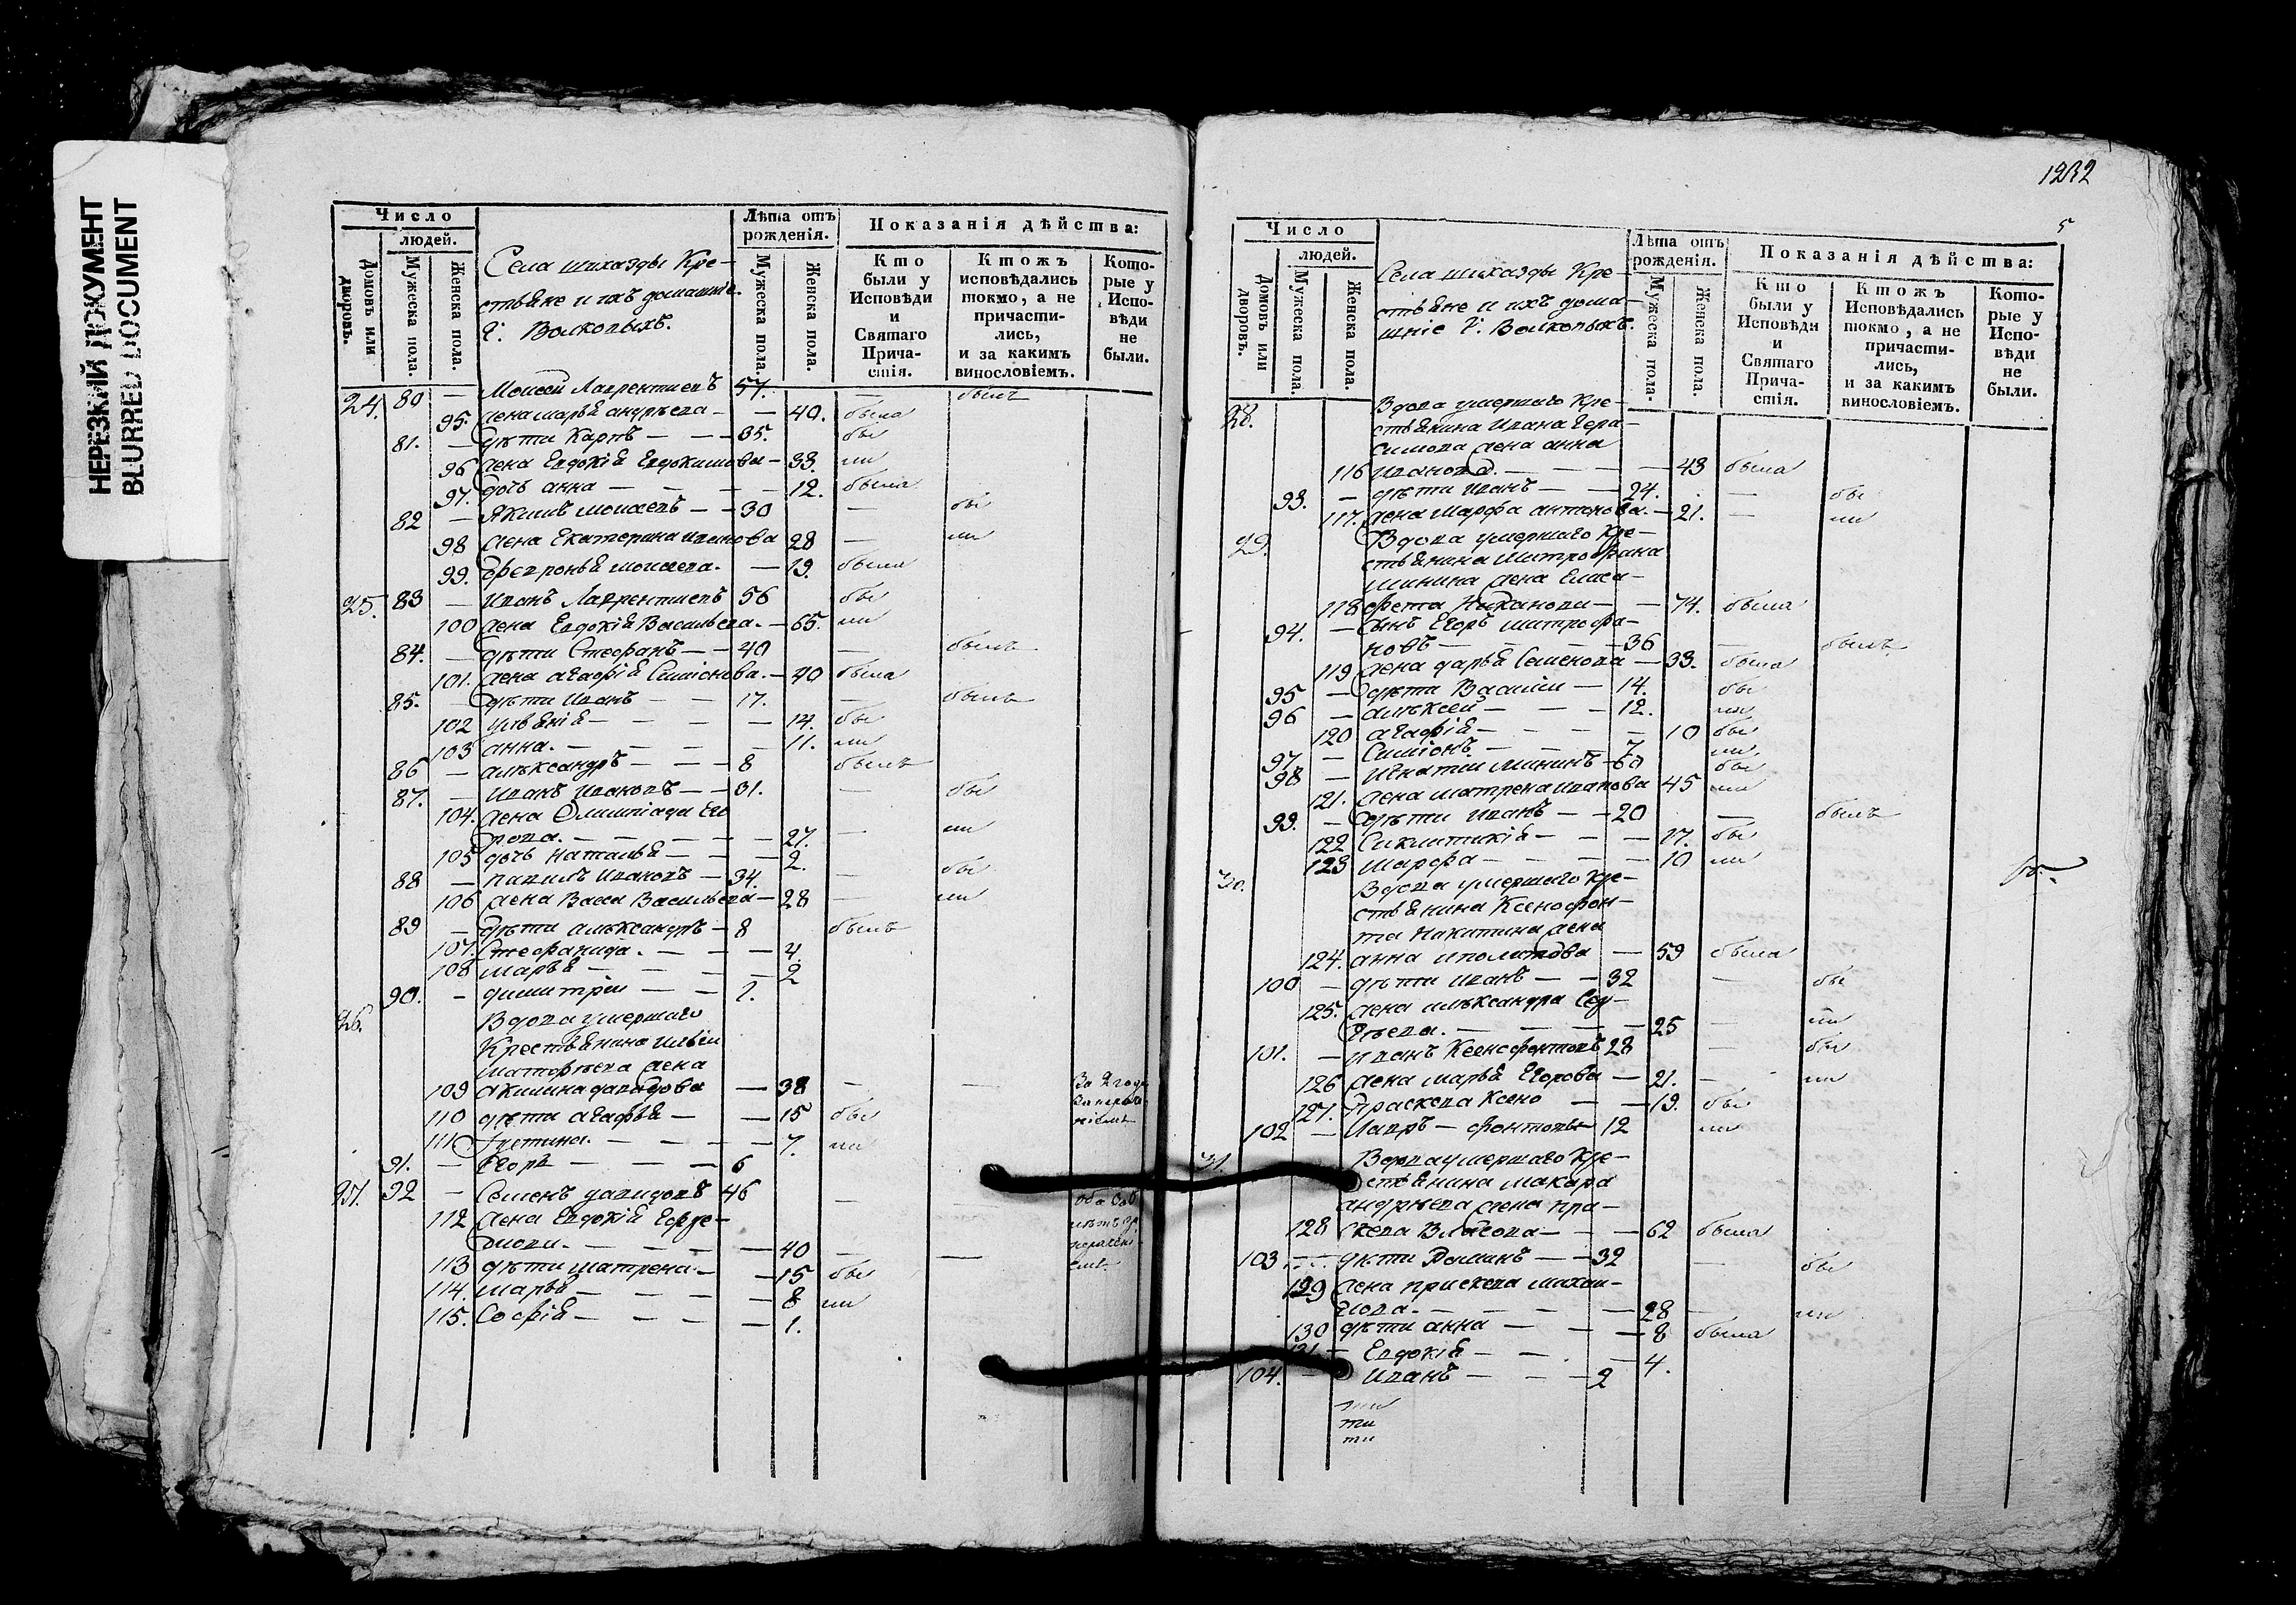 НЕРЕЗКИЙ ДОКУМЕНТ
BLURRED DOCUMENT
Число
людей.
Домовъ или дворовъ.
Мужеска пола.
Женска пола.
Села Шихазды Кре-
стьяне и ихъ домашніе
Г: Волковыхъ.
Лѣта отъ рожденія.
Мужеска пола.
Женска пола.
Показанія дѣйства:
Кто были у Исповѣди и Святаго Причастія.
Ктожъ исповѣдались токмо, а не причастились, и за какимъ винословіемъ.
Которые у Исповѣди не были.
24. 80 — Моисей Лаврентиевъ 57. — былъ
95. жена марья андреева — — 40. была
81. — дѣти Карпъ — — 35. бы
96 жена Евдокія Евдокимова — 33. ли
97. дочь анна — — — — 12. была
82 — Якимъ моисеевъ — — 30 — бы
98 жена Екатерина иванова 28 — ли
99. Февронья моисеева. — 19. была
25. 83 — Иванъ Лаврентиевъ 56 бы
100 жена Евдокія Васильева. — 65. ли
84. — дѣти Стефанъ — — 40 — былъ
101. жена агафія Симіонова. — 40 была
85. — дѣти Иванъ — — 17. — былъ
102 уліянія — — — — 14. бы
103 анна. — — — — 11. ли
86 — алѣксандръ — — — 8 былъ
87. — Иванъ Ивановъ — — 31. — бы
104. жена Олимпіада Его
рова. — — — — — 27. — ли
105 дочь наталья — — — 2.
88 — павилъ Ивановъ — 34. — бы
106 жена Васса Васильева — 28 — ли
89 — дѣти алѣксандръ — 8 былъ
107. Стефанида. — — — 4.
108 марья — — — — 2
90. — димитрій — — 1.
26. Вдова умершаго
Крестьянина Ильи
матфѣева жена
109 акилина давыдова — 38 — —
110 дѣти агафья — — 15 бы
111 Іустина. — — — — 7. ли
91. — Егоръ — — — 6
27. 92 — Семенъ давидовъ 46 — —
112 жена Евдокія Нефе-
диова. — — — — 40 — —
113 дѣти матрена — — 15 бы
114. марья — — — — 8 ли
115. Софія — — — — 1.
1232
5
Число
людей.
Домовъ или дворовъ.
Мужеска пола.
Женска пола.
Села Шихазды Кре-
стьяне и ихъ дома-
шніе Г: Волковыхъ.
Лѣта отъ рожденія.
Мужеска пола.
Женска пола.
Показанія дѣйства:
Кто были у Исповѣди и Святаго Причастія.
Ктожъ Исповѣдались токмо, а не причастились, и за какимъ винословіемъ.
Которые у Исповѣди не были.
28. Вдова умершаго Кре-
стьянина Ивана Гера-
симова жена анна
116 Иванова. — — — — 43 была
93. — дѣти Иванъ — — 24. — бы
117. жена марфа антонова. — 21. — ли
29. Вдова умершаго Кре-
стьянина Митрофана
Минина жена Елиса-
118 фета Никанова — — 74. была
94. — Сынъ Егоръ митрофа-
новъ — — — — 36 — былъ
119 жена дарья Семенова — 33. была
95 — дѣти Василій — 14. бы
96 — алѣксей — — — 12. ли
120 агафія — — — — 10 бы
97 — Симіонъ — — — 7 ли
98 — Игнатій Мининъ — 60 бы
121. жена матрена иванова 45 ли
99. — дѣти Иванъ — — 20 — былъ
122 Синклитикія — — — 17. бы
123 Марфа — — — — 10 ли
30. Вдова умершаго Кре-
стьянина Ксенофон-
та Никитина жена
124. анна иполитова — 59 была
100 — дѣти Иванъ — — 32 — бы
125. жена алѣксандра Сер-
гѣева. — — — — 25 — ли
101. — Иванъ Ксенофонтовъ 28 — бы
126 жена марья Егорова — 21. — ли
127. Праскева Ксено — — 19. бы
102 — Лавръ — фонтовы 12 ли
31. Вдова умершаго Кре-
стьянина макара
андрѣева жена пра-
128 скева Власова — — 62 была
103 — дѣти Романъ — — 32 — бы
129 жена праскева михаи-
лова. — — — — 28 — ли
130 дѣти анна — — — 8 была
131 — Евдокія — — — 4.
104. — Иванъ — — — 2